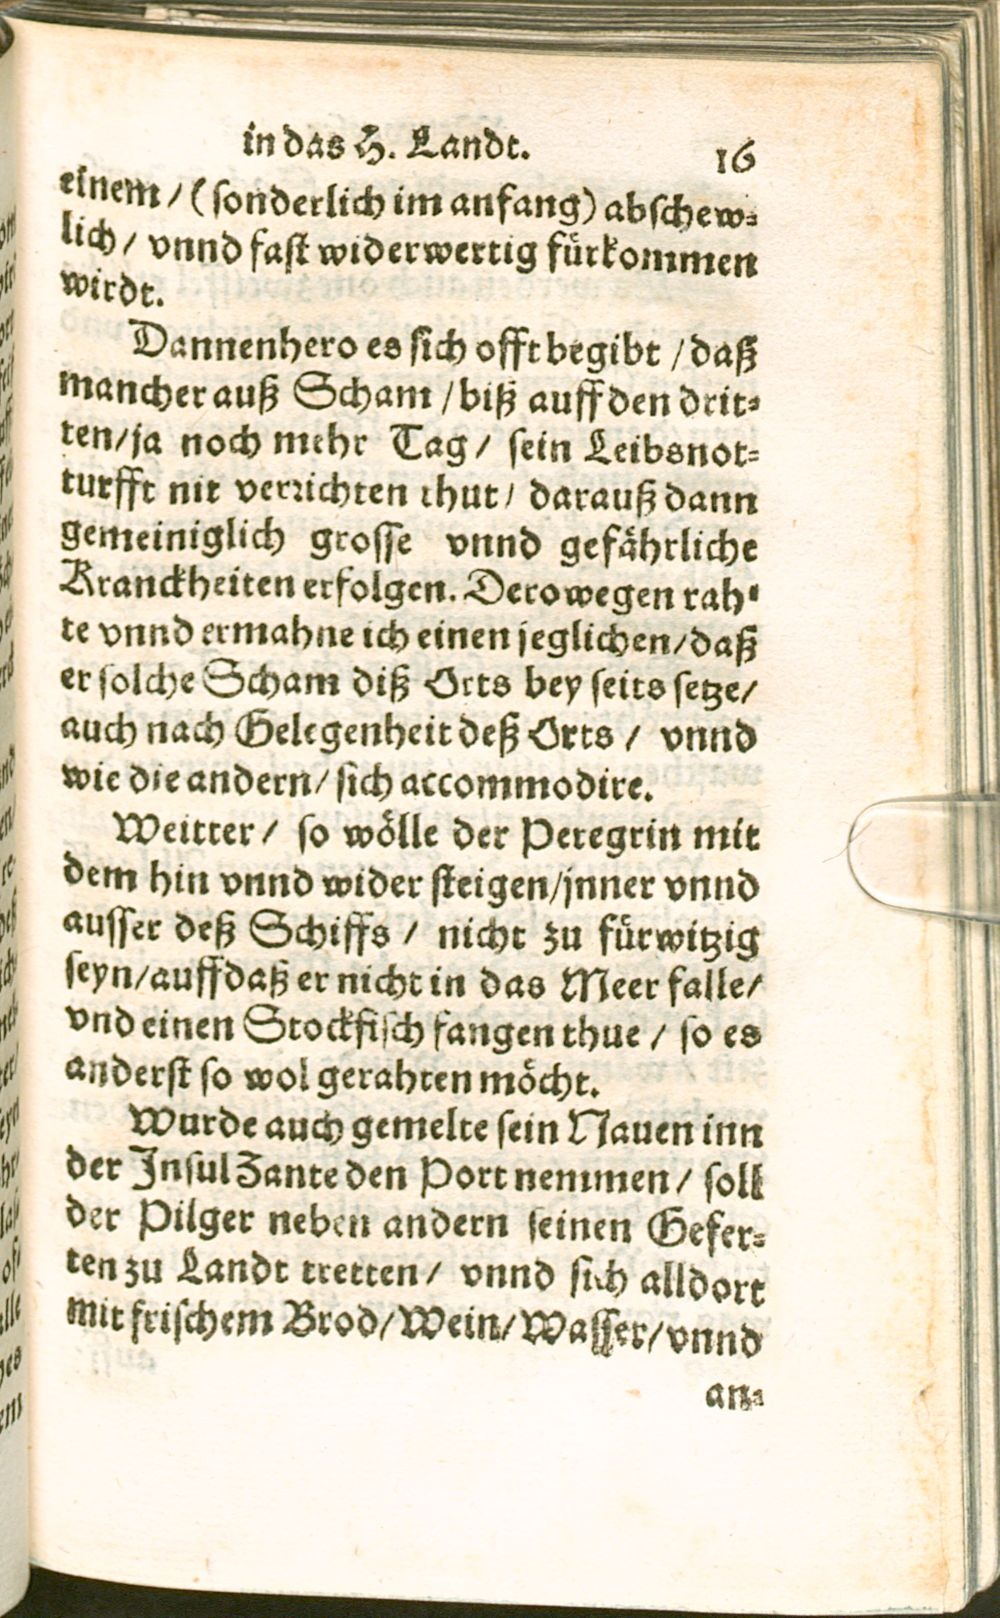 in das H. Landt. 16
einem / (sonderlich im anfang) abschew⸗
lich / vnnd fast widerwertig fürkommen
wirdt.
Dannenhero es sich offt begibt / daß
mancher auß Scham / biß auff den drit⸗
ten/ja noch mehr Tag / sein Leibsnot⸗
turfft nit verrichten thut / darauß dann
gemeiniglich grosse vnnd gefährliche
Kranckheiten erfolgen. Derowegen rah⸗
te vnnd ermahne ich einen jeglichen/daß
er solche Scham diß Orts bey seits setze/
auch nach Gelegenheit deß Orts / vnnd
wie die andern/ sich accommodire.
Weitter / so wölle der Peregrin mit
dem hin vnnd wider steigen/jnner vnnd
ausser deß Schiffs / nicht zu fürwitzig
seyn/auff daß er nicht in das Meer falle/
vnd einen Stockfisch fangen thue / so es
anderst so wol gerahten möcht.
Wurde auch gemelte sein Nauen inn
der Insul Zante den Port nemmen / soll
der Pilger neben andern seinen Gefer⸗
ten zu Landt tretten / vnnd sich alldort
mit frischem Brod/Wein/Wasser/vnnd
an⸗